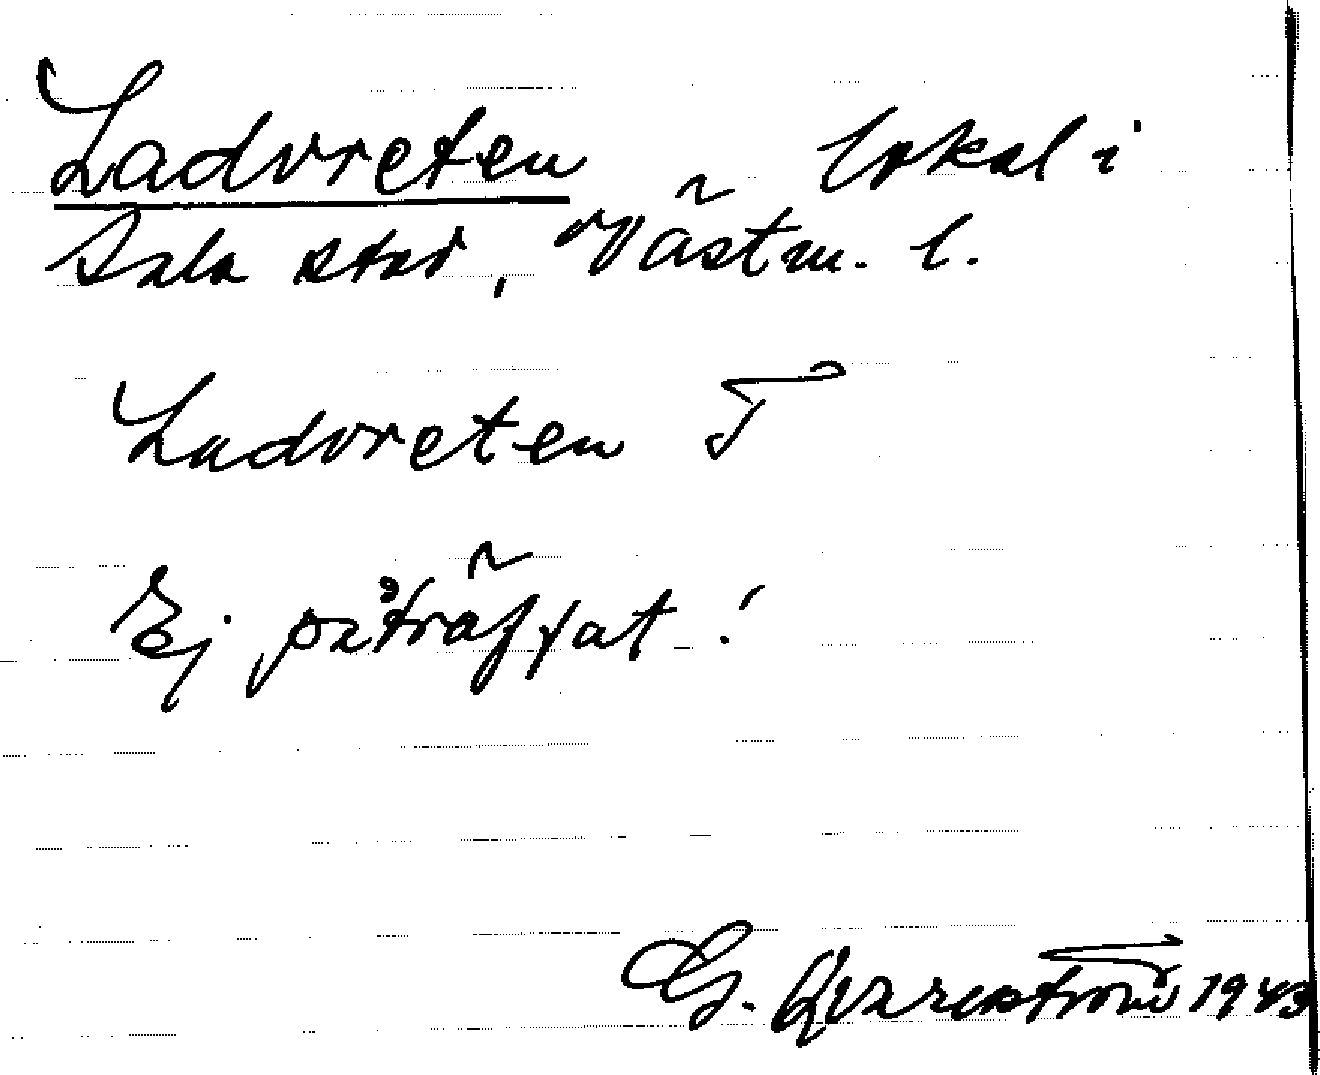 Ladvreten lokal i
Sala stad, Västm. l.
Ladvreten T
Ej påträffat!
G. Qvarnström 1943